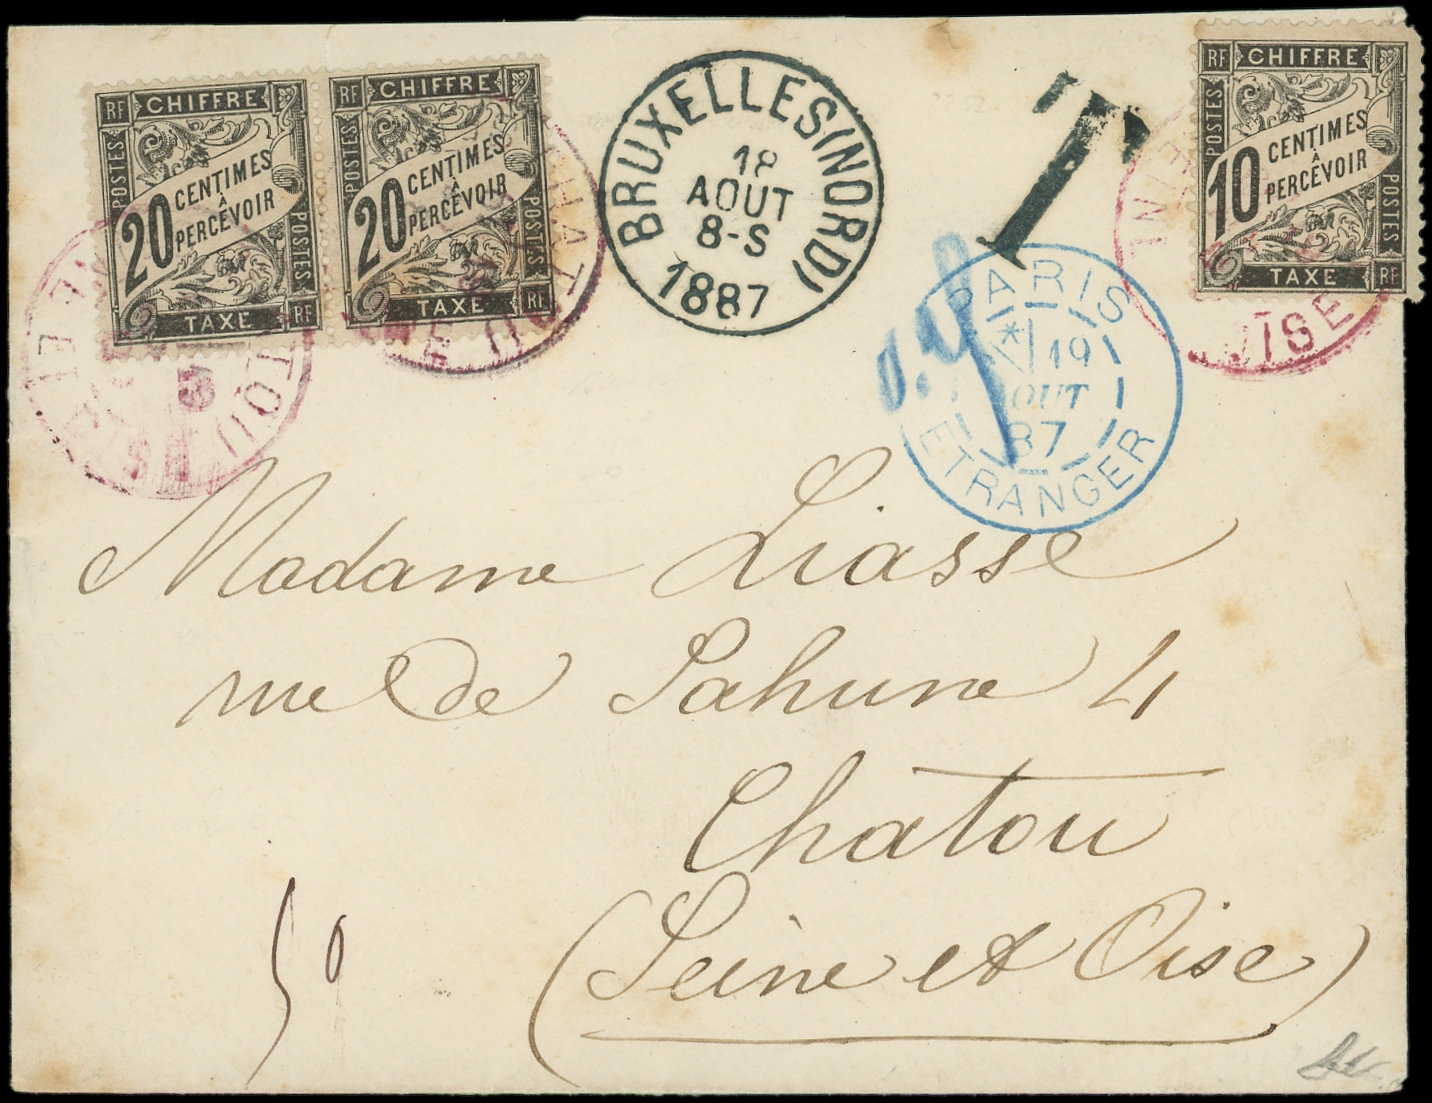 RF CHIFFRE
POSTES
20 CENTIMES
À
PERCEVOIR
POSTES
TAXE RF
RF CHIFFRE
POSTES
20 CENTIMES
À
PERCEVOIR
POSTES
TAXE RF
BRUXELLES (NORD)
18
AOUT
8-S
1887
T
RF CHIFFRE
POSTES
10 CENTIMES
À
PERCEVOIR
POSTES
TAXE RF
PARIS
19
AOUT
87
ETRANGER
CHATOU
Madame Liasse
rue de Sahune 4
Chatou
(Seine et Oise)
50